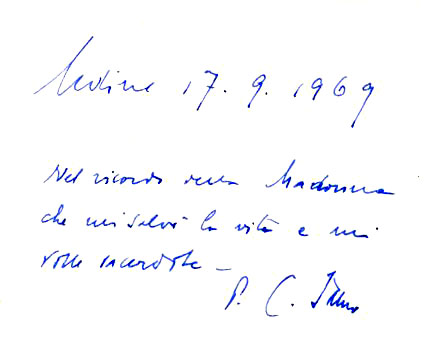 Udine 17.9.1969
Nel ricordo della Madonna
che mi salvò la vita e mi
volle sacerdote -
P. C.